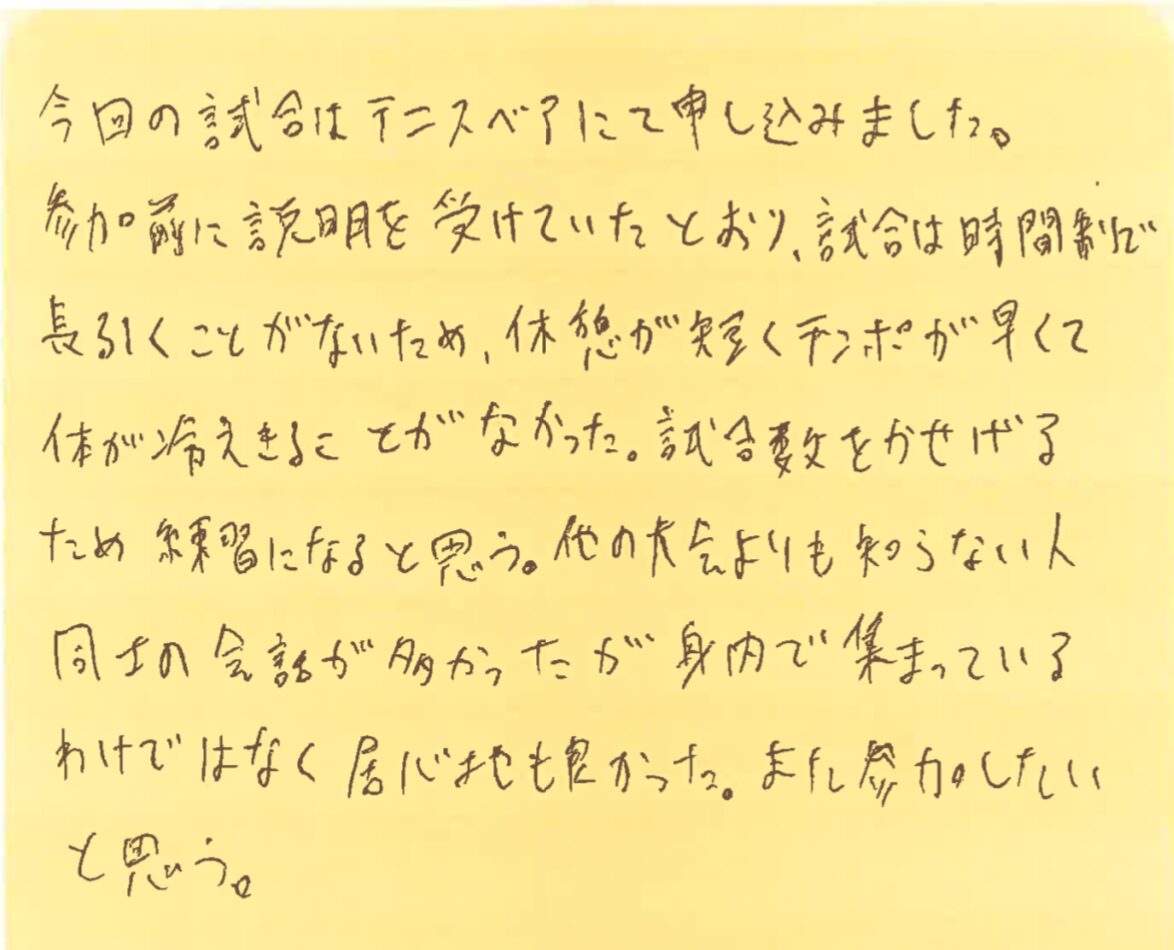 今回の試合はテニスベアにて申し込みました。
参加前に説明を受けていたとおり、試合は時間割で
長引くことがないため、休憩が短くテンポが早くて
体が冷えきることがなかった。試合数をかせげる
ため練習になると思う。他の大会よりも知らない人
同士の会話が多かったが身内で集まっている
わけではなく居心地も良かった。また参加したい
と思う。